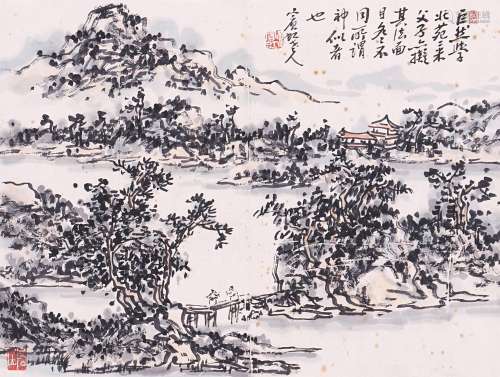 巨然學
北苑米
父子亦擬
其法面
目各不
同所謂
神似者
也
賓虹